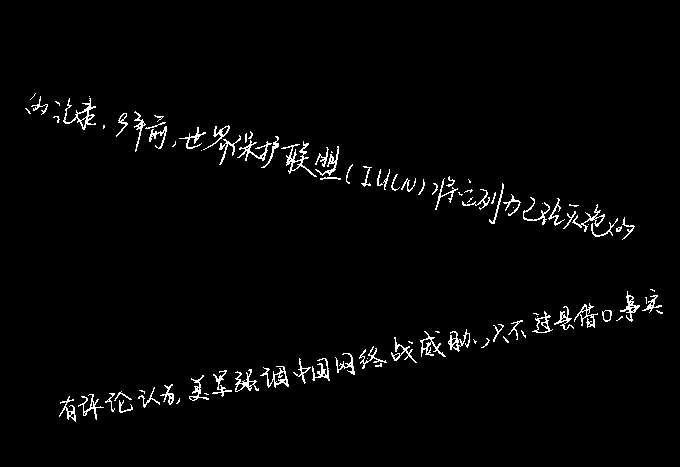 的记录.9年前,世界保护联盟(IUCN)将它列为已经灭绝的
有评论认为,美军强调中国网络战威胁,只不过是借口.事实